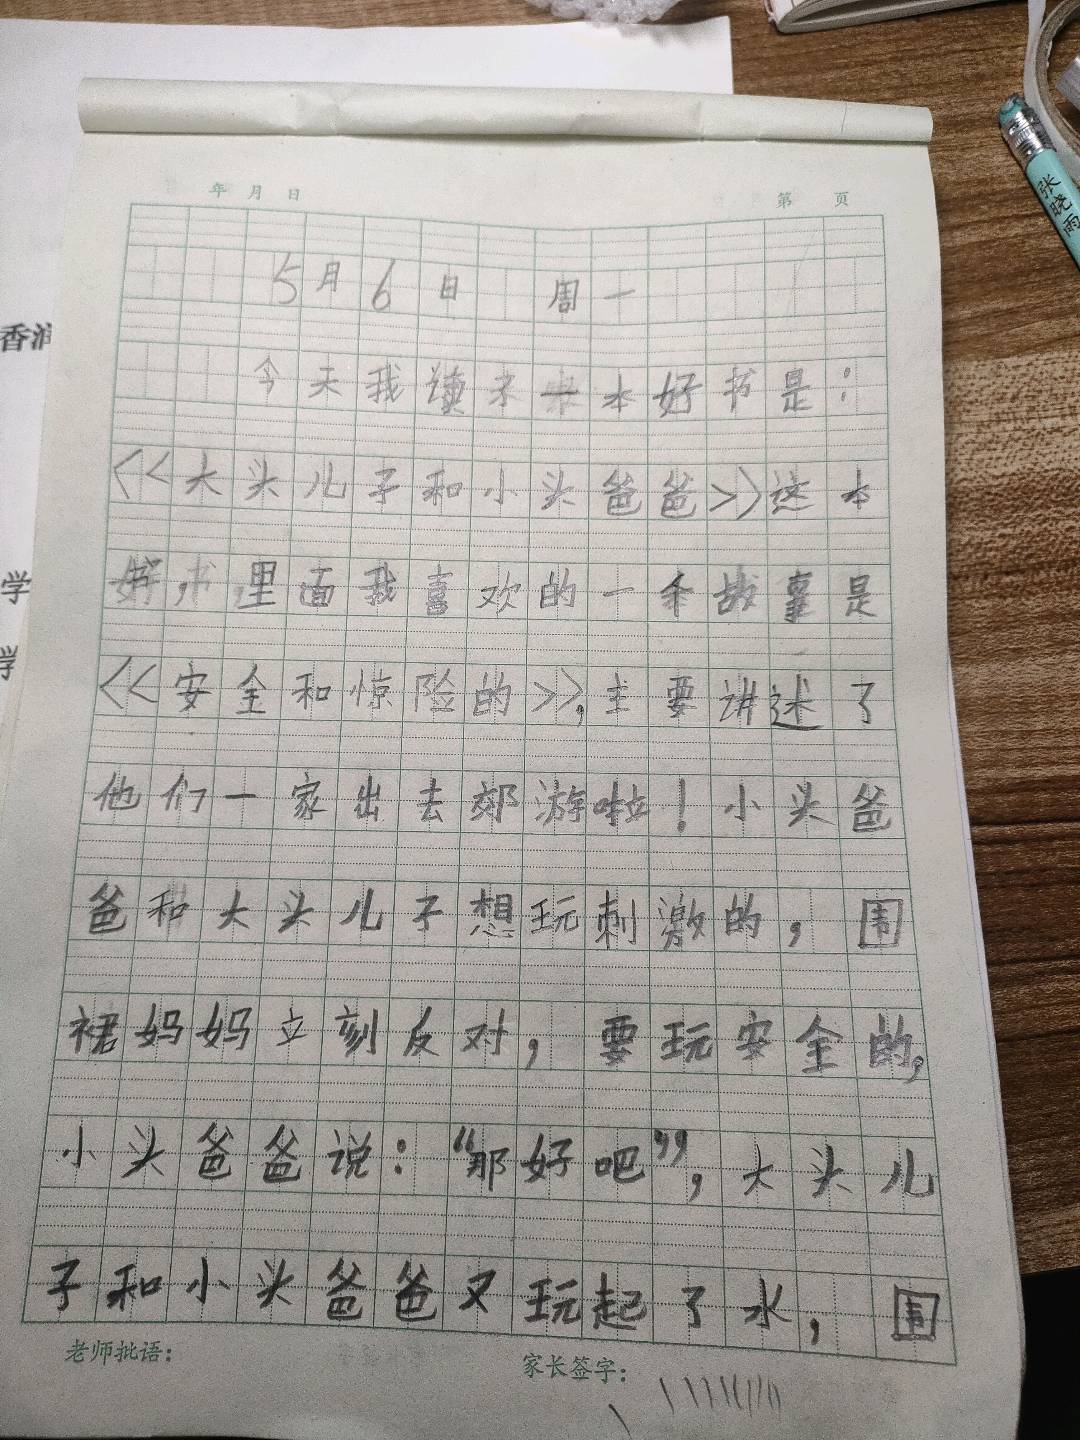 年 月 日
第 页
5月6日 周一
今天我读本好书是：
<<大头儿子和小头爸爸>>这本
书,里面我喜欢的一个故事是
<<安全和惊险的>>,主要讲述了
他们一家出去郊游啦！小头爸
爸和大头儿子想玩刺激的，围
裙妈妈立刻反对，要玩安全的,
小头爸爸说：“那好吧”,大头儿
子和小头爸爸又玩起了水，围
老师批语：
家长签字：
张晓雨
香润
学
学